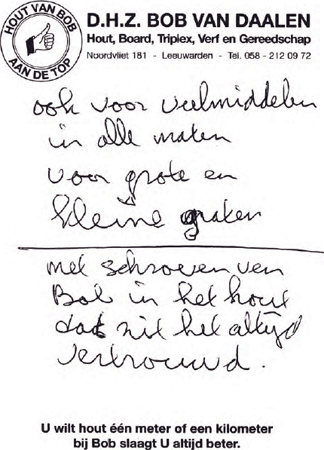 HOUT VAN BOB
AAN DE TOP
D.H.Z. BOB VAN DAALEN
Hout, Board, Triplex, Verf en Gereedschap
Noordvliet 181 - Leeuwarden - Tel. 058 - 212 09 72
ook voor vulmiddelen
in alle maten
voor grote en
kleine gaten
met schroeven van
Bob in het hout
dat zit het altijd
vertrouwd.
U wilt hout één meter of een kilometer
bij Bob slaagt U altijd beter.